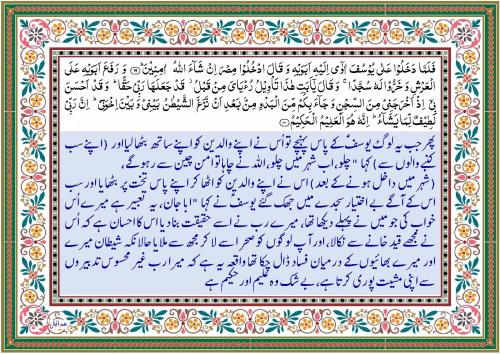 فَلَمَّا دَخَلُوْا عَلٰى يُوْسُفَ اٰوٰٓى اِلَيْهِ اَبَوَيْهِ وَ قَالَ ادْخُلُوْا مِصْرَ اِنْ شَآءَ اللّٰهُ اٰمِنِيْنَ ﴿۹۹﴾ وَ رَفَعَ اَبَوَيْهِ عَلَى
الْعَرْشِ وَ خَرُّوْا لَهٗ سُجَّدًا ۚ وَ قَالَ يٰۤاَبَتِ هٰذَا تَاْوِيْلُ رُءْيَايَ مِنْ قَبْلُ ۫ قَدْ جَعَلَهَا رَبِّيْ حَقًّا ؕ وَ قَدْ اَحْسَنَ
بِيْۤ اِذْ اَخْرَجَنِيْ مِنَ السِّجْنِ وَ جَآءَ بِكُمْ مِّنَ الْبَدْوِ مِنْۢ بَعْدِ اَنْ نَّزَغَ الشَّيْطٰنُ بَيْنِيْ وَ بَيْنَ اِخْوَتِيْ ؕ اِنَّ رَبِّيْ
لَطِيْفٌ لِّمَا يَشَآءُ ؕ اِنَّهٗ هُوَ الْعَلِيْمُ الْحَكِيْمُ ﴿۱۰۰﴾
پھر جب یہ لوگ یوسفؑ کے پاس پہنچے تو اُس نے اپنے والدین کو اپنے ساتھ بٹھا لیا اور (اپنے سب
کنبے والوں سے) کہا "چلو، اب شہر میں چلو، اللہ نے چاہا تو امن چین سے رہو گے،
(شہر میں داخل ہونے کے بعد) اس نے اپنے والدین کو اٹھا کر اپنے پاس تخت پر بٹھایا اور سب
اس کے آگے بے اختیار سجدے میں جھک گئے یوسفؑ نے کہا "ابا جان، یہ تعبیر ہے میرے اُس
خواب کی جو میں نے پہلے دیکھا تھا، میرے رب نے اسے حقیقت بنا دیا اس کا احسان ہے کہ اُس
نے مجھے قید خانے سے نکالا، اور آپ لوگوں کو صحرا سے لا کر مجھ سے ملایا حالانکہ شیطان میرے
اور میرے بھائیوں کے درمیان فساد ڈال چکا تھا واقعہ یہ ہے کہ میرا رب غیر محسوس تدبیروں
سے اپنی مشیت پوری کرتا ہے، بے شک وہ علیم اور حکیم ہے